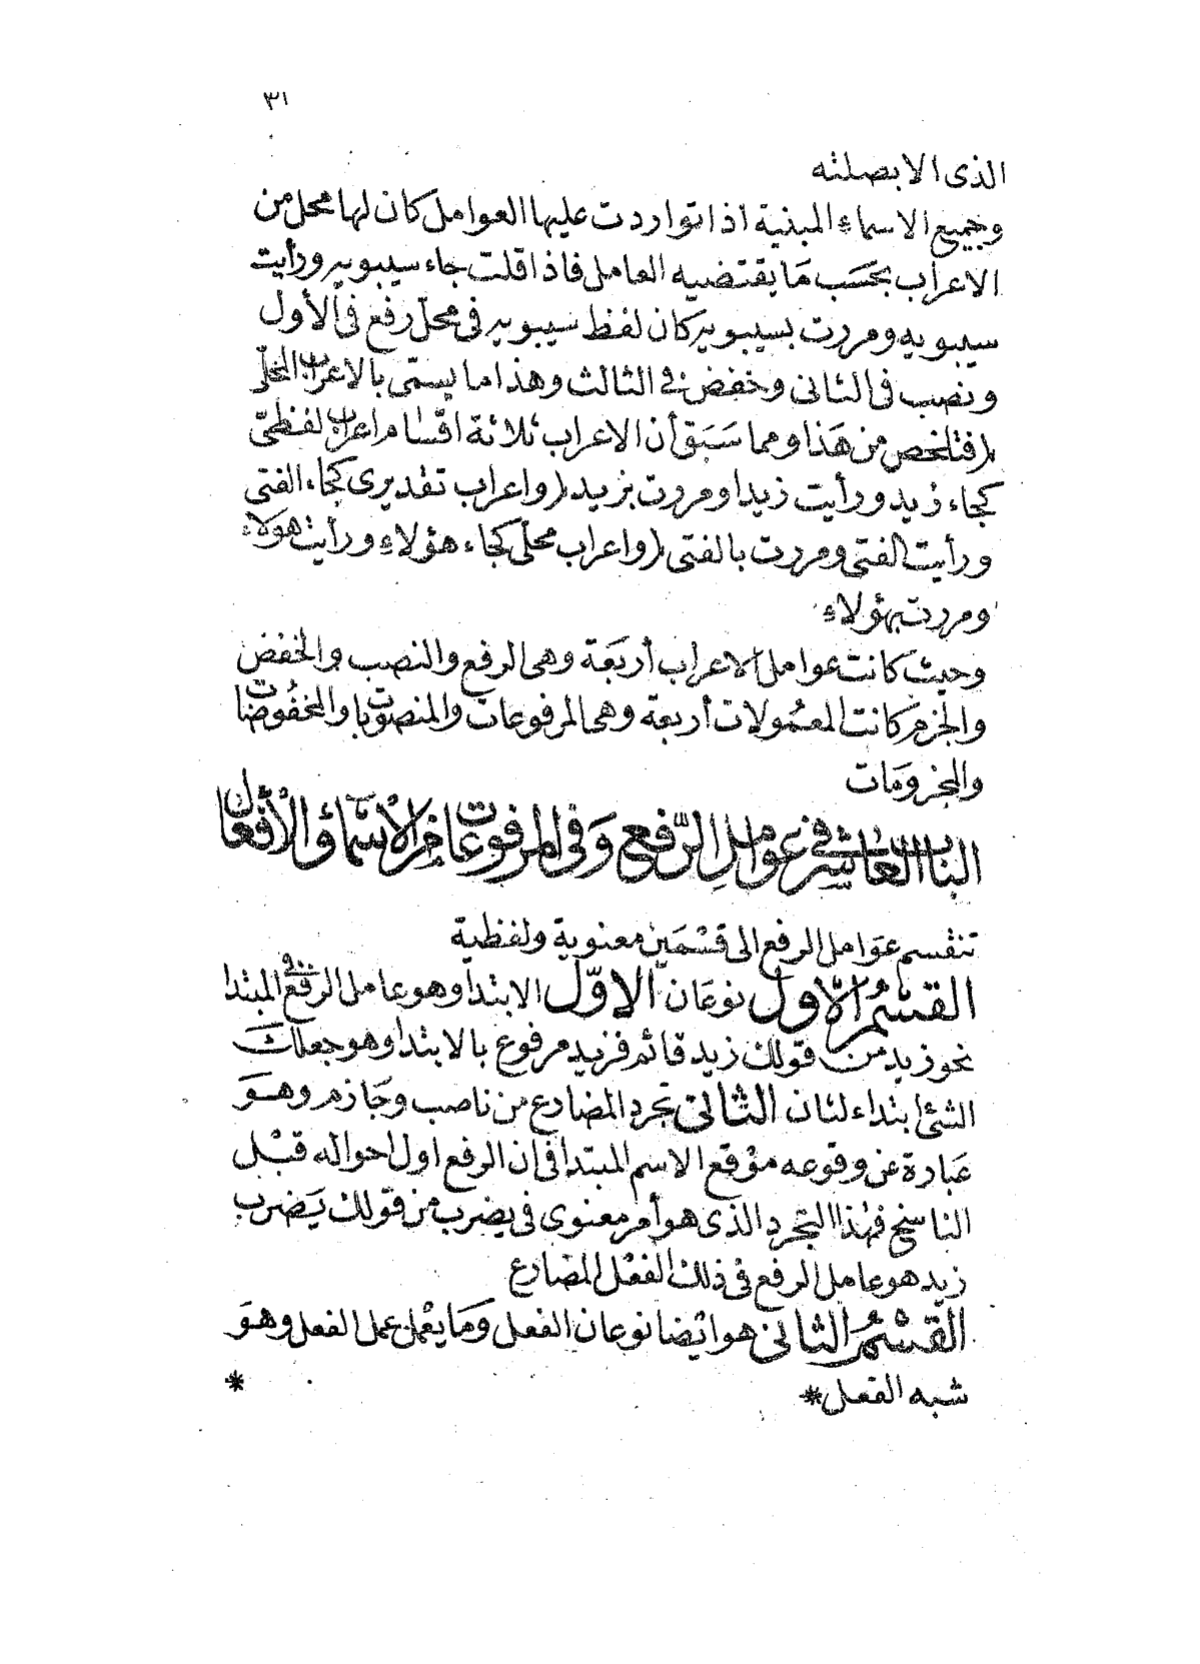 ٣١
الذى الا بصلته
وجميع الاسماء المبنية اذا تواردت عليها العوامل كان لها محل من
الاعراب بحَسَب مَا يقتضيه العامل فاذا قلت جاء سيبويه ورأيت
سيبويه ومررت بسيبويه كان لفظ سيبويه فى محلّ رفع فى الأول
ونصب فى الثانى وخفض فى الثالث وهذا ما يسمّى بالاعراب المحلّى
(فتلخص من هَذا ومما سَبَق أن الاعراب ثلاثة اقسَام اعراب لفظىّ
كجاء زيد ورأيت زيدا ومررت بزيد (واعراب تقديرى كجاء الفتى
ورأيت الفتى ومررت بالفتى (واعراب محلّى كجاء هؤلاءِ ورأيت هؤلاء
ومررت بهؤلاءِ
وحيث كانت عوامل الاعراب أربَعَة وهى الرفع والنصب والخفض
والجزم كانت المعمُولات أربعة وهى المرفوعات والمنصوبات والمخفُوضات
والمجزومَات
البَاب العَاشِر فى عَوامِل الرَّفع وَفى المرفوعَات مِن الاسْمَاء وَالأفْعَال
تنقسم عَوَامل الرفع الى قسْمَين معنوية ولفظية
القسْمُ الأوّل نوعَان الاوّل الابتدا وهو عامل الرفع فى المبتدا
نحو زيد من قولك زيد قائم فزيد مرفوع بالابتدا وهو جعلك
الشئ ابتداء لثان الثَّانى تجرد المضارع من ناصب وجَازم وهوَ
عبَارة عن وقوعه موْقع الاسم المبتدا فى ان الرفع اول احواله قبْل
الناسخ فهٰذا التجرد الذى هو أمر معنوى فى يضرب من قولك يَضرب
زيد هو عامل الرفع فى ذلك الفعْل المضارع
القسْمُ الثانى هو ايْضا نوعان الفعل وَمَا يعْمل عمل الفعل وهوَ
شبه الفعل* *